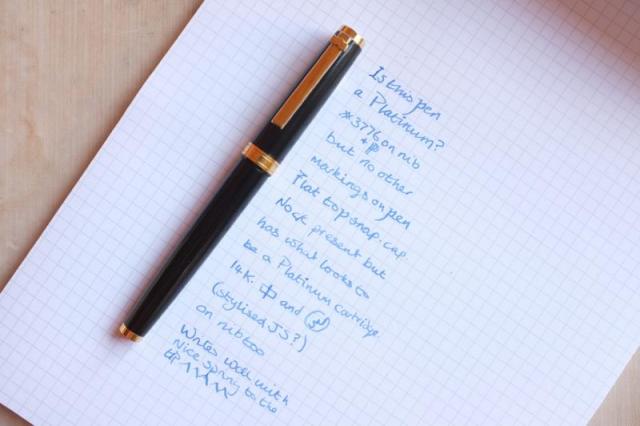 Is this pen
a Platinum?
*3776 on nib
+
but no other
markings on pen
Flat top snap cap
Nock present but
has what looks to
be a Platinum cartridge.
14K. and
(stylised JS?)
on nib too
Writes well with
Nice spring to the